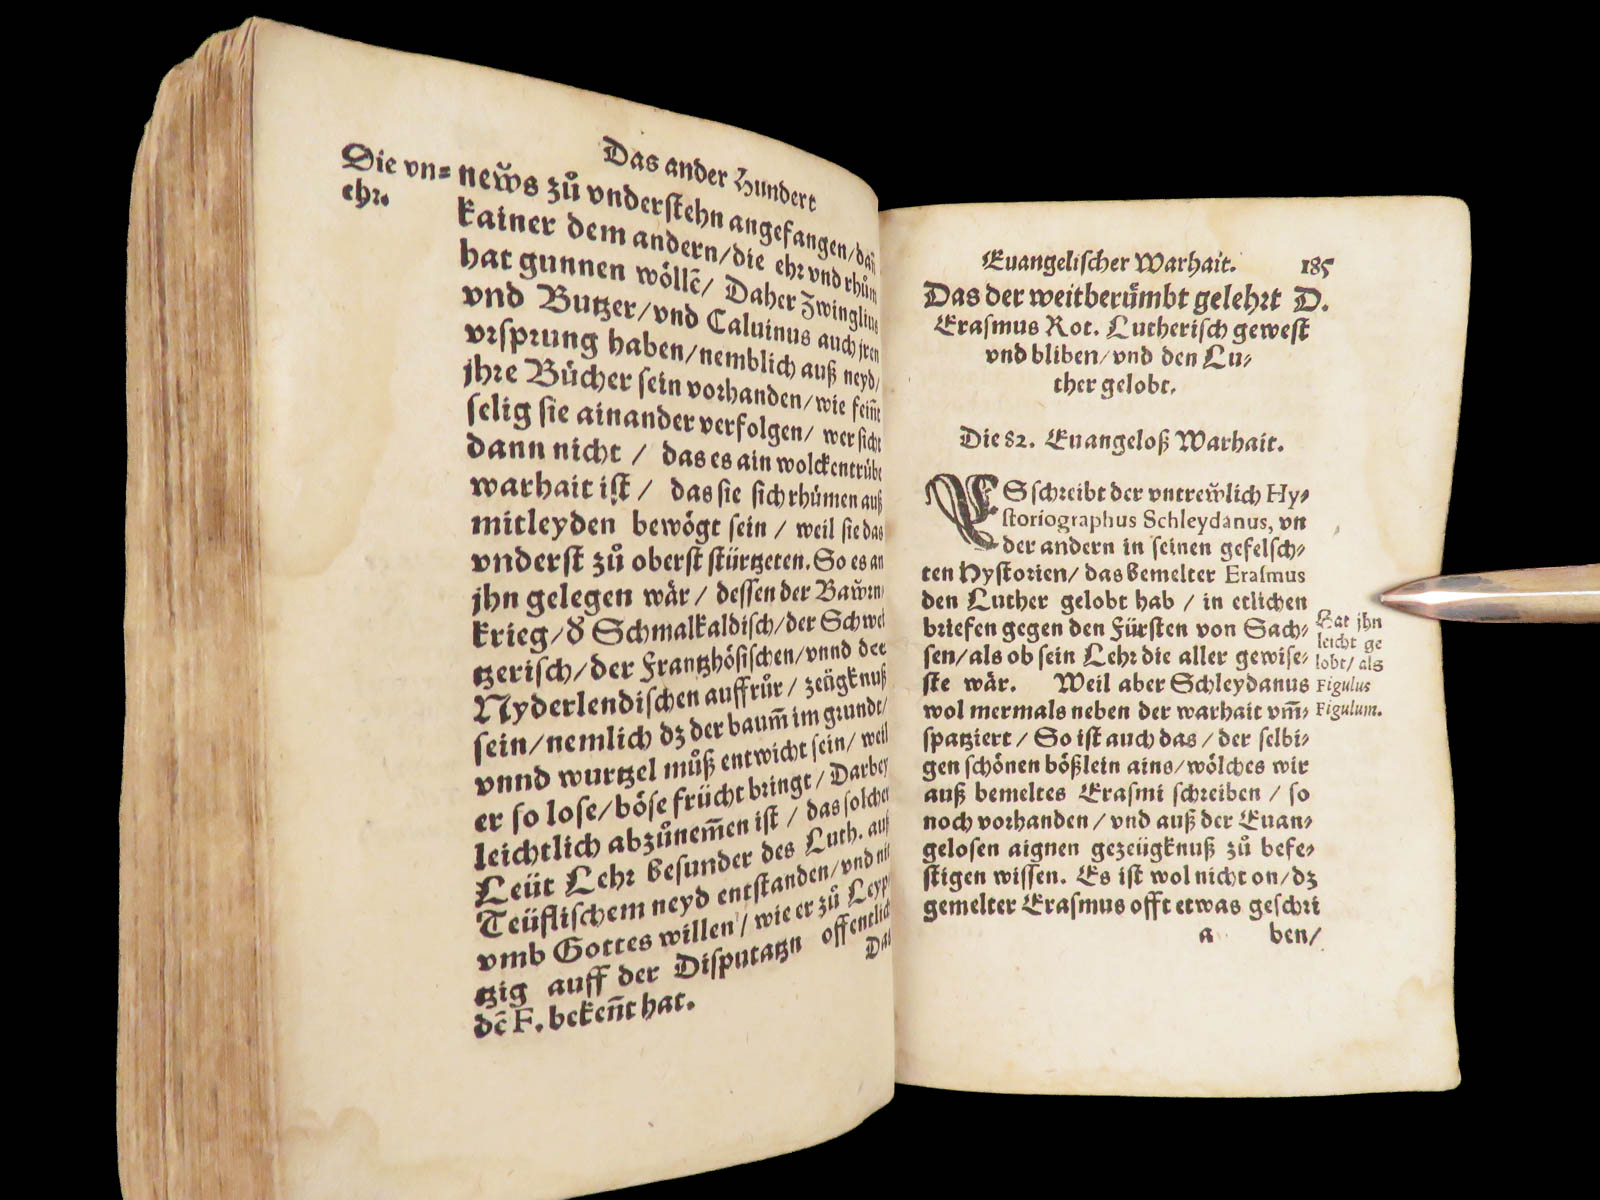 Das ander Hundert
Die vn=
ehr.
neẅs zů vnderstehn angefangen/ dañ
kainer dem andern/die ehr vnd rhům
hat gunnen wöllē/ Daher Zwinglius
vnd Butzer/vnd Caluinus auch jren
vrsprung haben/nemblich auß neyd/
jhre Bücher sein vorhanden/wie feiñt
selig sie ainander verfolgen/ wer sicht
dann nicht / das es ain wolckentrübe
warhait ist / das sie sich rhümen auß
mitleyden bewögt sein / weil sie das
vnderst zů oberst stürtzeten. So es an
jhn gelegen wär / dessen der Baẅrn
krieg/ď Schmalkaldisch/der Schwei
tzerisch/der Frantzhösischen/vnnd der
Nyderlendischen auffrůr / zeügknuß
sein/nemlich dz der baum̄ im grundt/
vnnd wurtzel můß entwicht sein/ weil
er so lose/böse frücht bringt/ Darbey
leichtlich abzůnem̄en ist / das solcher
Leüt Lehr besunder des Luth. auß
Teüflischem neyd entstanden/vnd nit
vmb Gottes willen/ wie er zů Leyp
tzig auff der Disputatzn offentlich
dē F. bekeñt hat.
Das
Euangelischer Warhait. 185
Das der weitberümbt gelehrt D.
Erasmus Rot. Lutherisch gewest
vnd bliben/vnd den Lu=
ther gelobt.
Die 82. Euangeloß Warhait.
ES schreibt der vntreẅlich Hy=
storiographus Schleydanus, vn
der andern in seinen gefelsch=
ten Hystorien/ das bemelter Erasmus
den Luther gelobt hab / in etlichen
briefen gegen den Fürsten von Sach=
sen/als ob sein Lehr die aller gewise=
ste wär. Weil aber Schleydanus
wol mermals neben der warhait vm̄=
spatziert / So ist auch das / der selbi=
gen schönen bößlein ains/wölches wir
auß bemeltes Erasmi schreiben / so
noch vorhanden / vnd auß der Euan=
gelosen aignen gezeügknuß zů befe=
stigen wissen. Es ist wol nicht on/dz
gemelter Erasmus offt etwas geschri
a ben/
Hat jhn
leicht ge
lobt/ als
Figulus
Figulum.